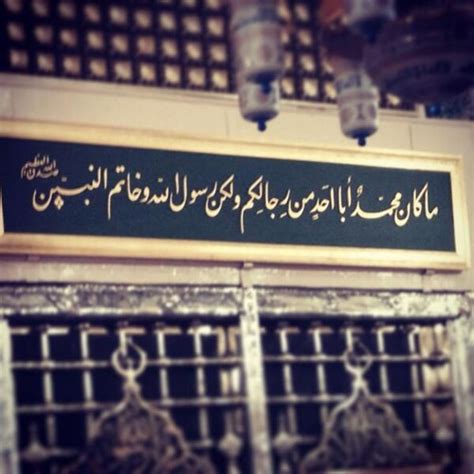 ما كان محمدٌ أبا احدٍ من رجالكم ولكن رسول الله وخاتم النبيّن
صدق الله العظيم